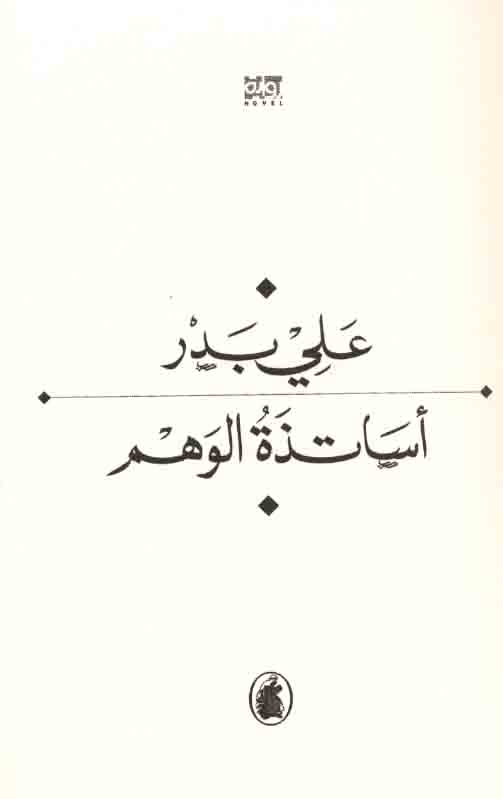 رواية
NOVEL
عَلِيْ بَدِرْ
أسَاتذَةُ الوَهْم